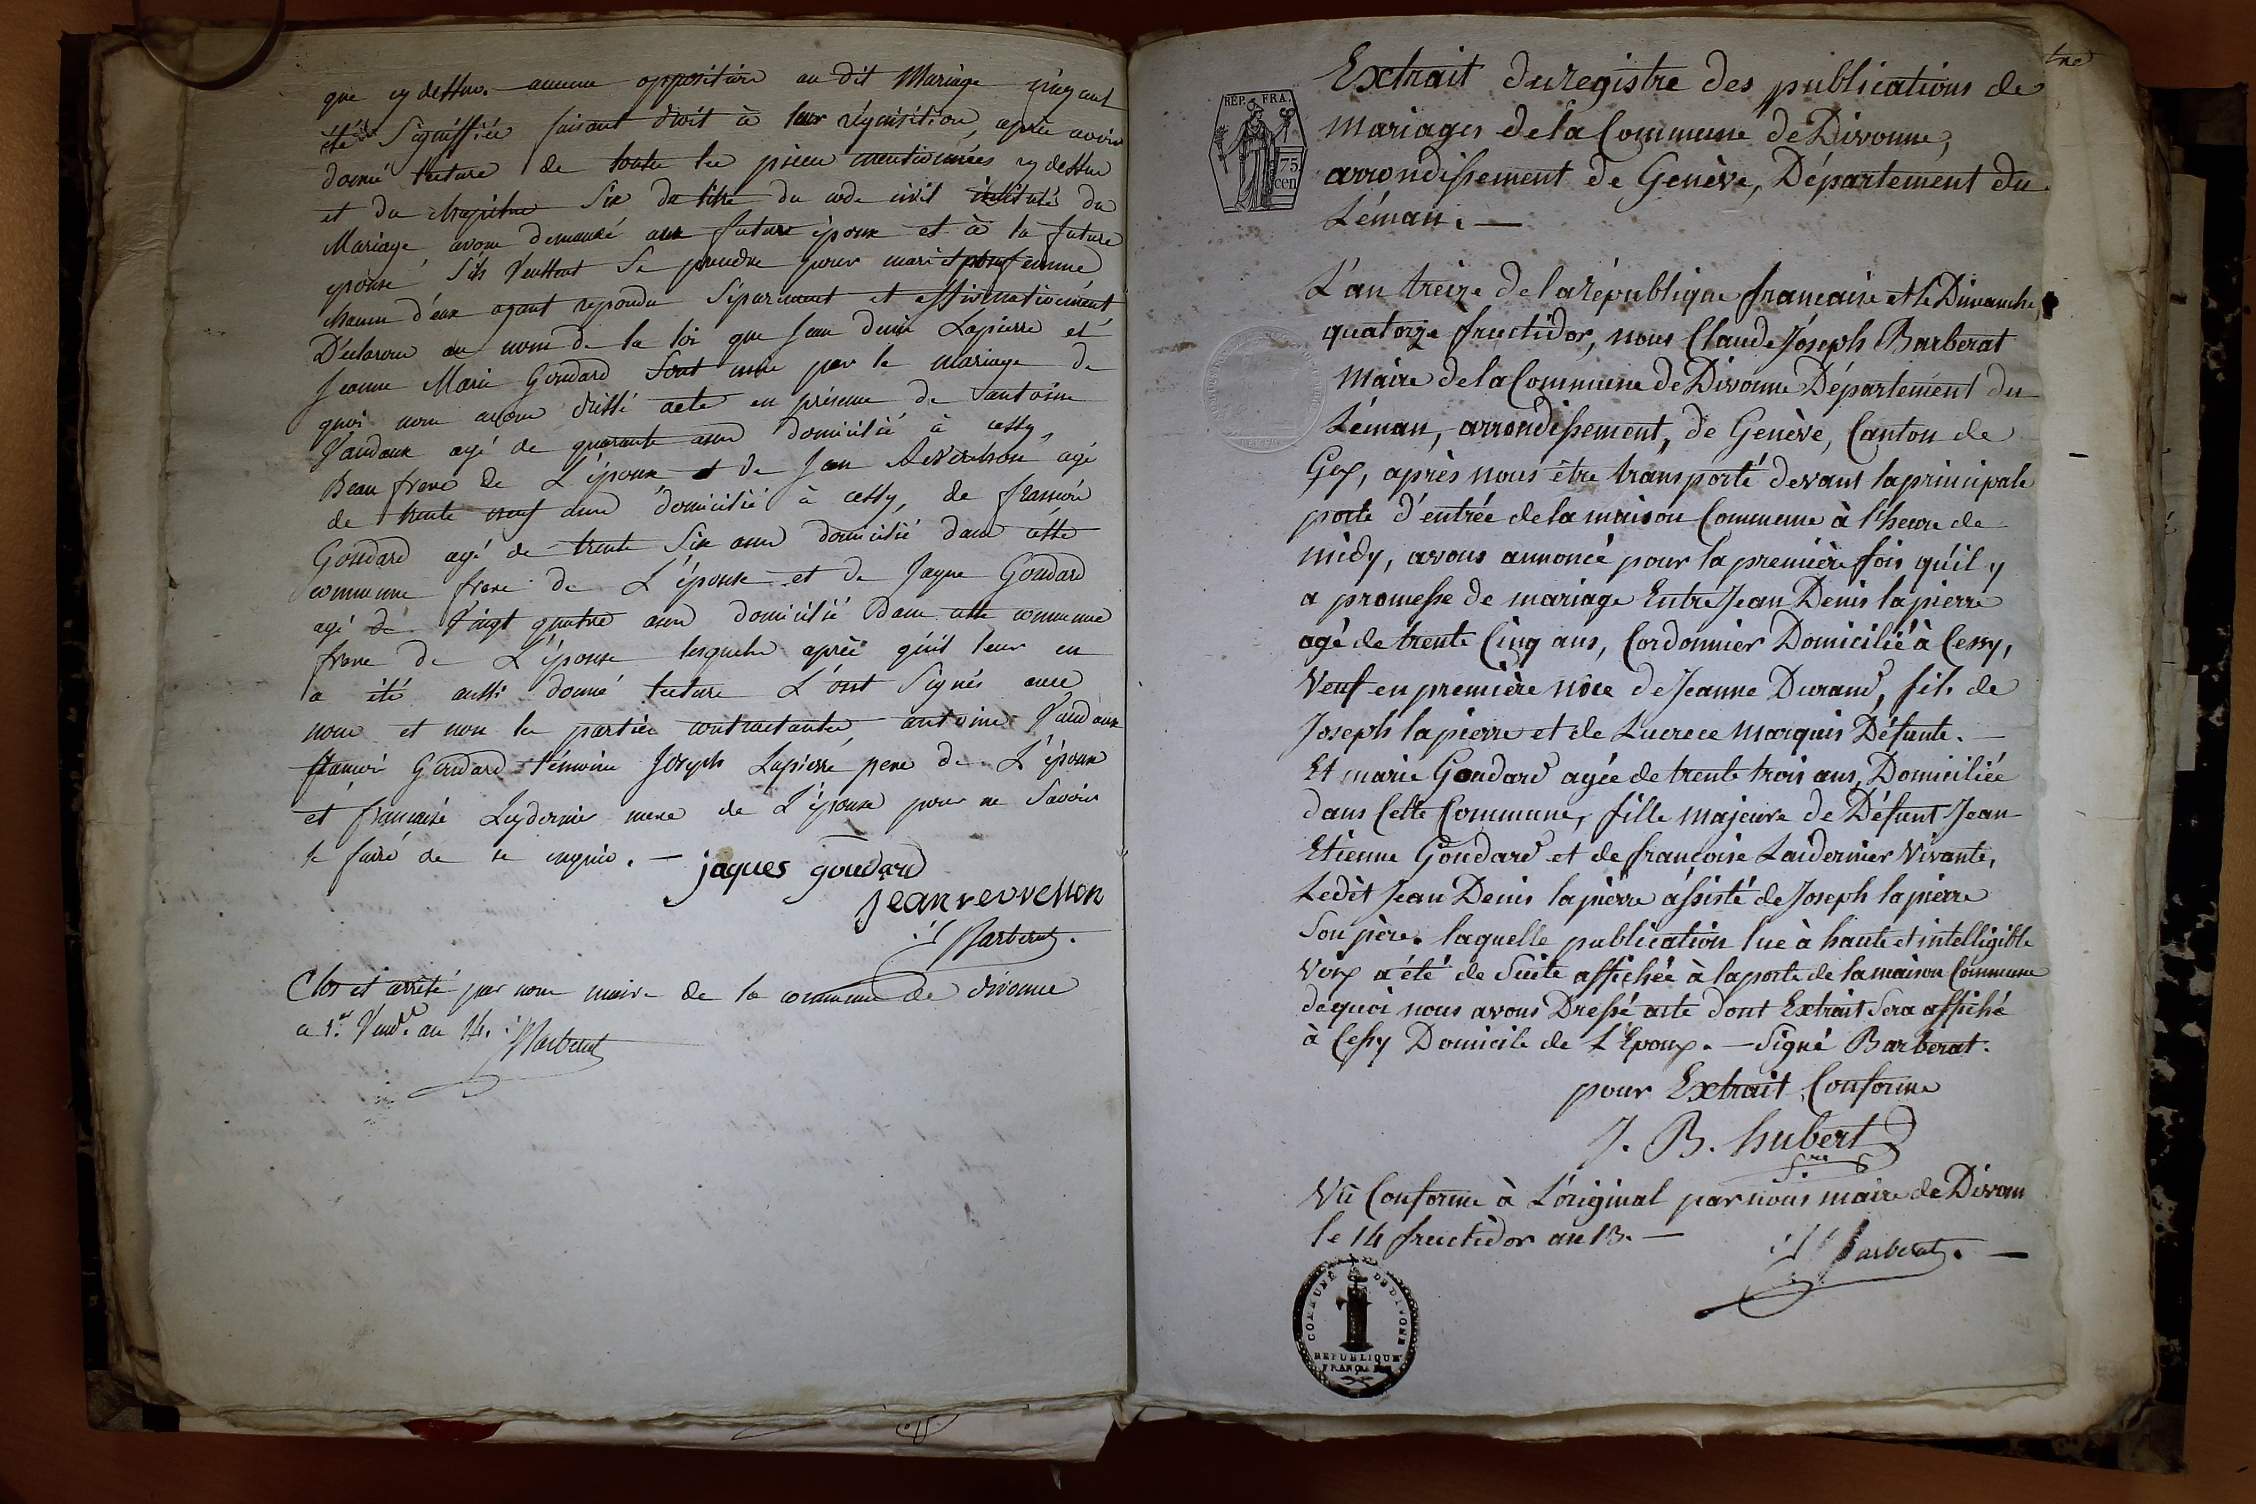 que cy dessus. aucune opposition au dit Mariage n'ayant
été Signiffiée faisant droit à leur réquisition, après avoir
donné lecture de toute les pièces mentionnées cy dessus
et du chapitre Six du titre du code civil intitulé du
Mariage avons demandé aux futur époux et à la future
epouse s'ils veullent se prendre pour mari et pour femme
chacun d'eux ayant repondu séparément et affirmativement,
Déclarons au nom de la loi que Jean denis Lapierre et
Jeanne Marie Goudard Sont unis par le mariage de
quoi nous avons dressé acte en présence de d'antoine
Vaudaux agé de quarante ans domicilié à cessy,
Beau frere de L'époux et de Jean Reverchon agé
de trente neuf ans domicilié à cessy, de francois
Goudard agé de trente Six ans domicilié dans cette
commune frere de L'épouse et de Jaque Goudard
agé de Vingt quatre ans domicilié dans cette commune
frere de L'épouse lesquels après qu'il leur en
a été aussi donné lecture L'ont Signés avec
nous et non les parties contractantes antoine Vaudaux
francoi Goudard témoins Joseph Lapierre pere de L'époux
et francoise Leydernier mere de L'épouse pour ne Savoir
le faire de ce enquis. —
jaques goudard
Jean revverson
Barberat.
Clos et arrêté par nous maire de la commune de divonne
a 1.er Vend.re an 14.
Barberat
REP. FRA.
75
cen
Extrait du registre des publications de
mariages de la Commune de Divonne,
arrondissement de Genève, Département du
Léman. —
L'an treize de la république française et le Dimanche
quatorze fructidor, nous Claude Joseph Barberat
Maire de la Commune de Divonne Département du
Léman, arrondissement, de Genève, Canton de
Gex, après nous être transporté devant la principale
porte d'entrée de la maison Commune à l'heure de
midy, avons annoncé pour la première fois qu'il y
a promesse de mariage Entre Jean Denis lapierre
agé de trente Cinq ans, Cordonnier Domicilié à Cessy,
Veuf en première nôce de Jeanne Durand, fils de
Joseph lapierre et de Lucrece Marquis Défunte. —
Et marie Goudard agée de trente trois ans, Domiciliée
dans Cette Commune, fille majeure de Défunt Jean
Etienne Goudard et de françoise Laidernier Vivante,
Ledit Jean Denis lapierre assisté de Joseph lapierre
Son père. laquelle publication lue à haute et intelligible
Voix a été de Suite affichée à la porte de la maison Commune
de quoi nous avons Dressé acte dont Extrait Sera affiché
à Cessy Domicile de L'Epoux. — Signé Barberat.
pour Extrait Conforme
J. B. hubert
S.re
Vû Conforme à L'original par nous maire de Divonn
le 14 fructidor an 13. —
Barberat. —
COMMUNE DE DIVONNE
REPUBLIQUE
FRANÇAISE